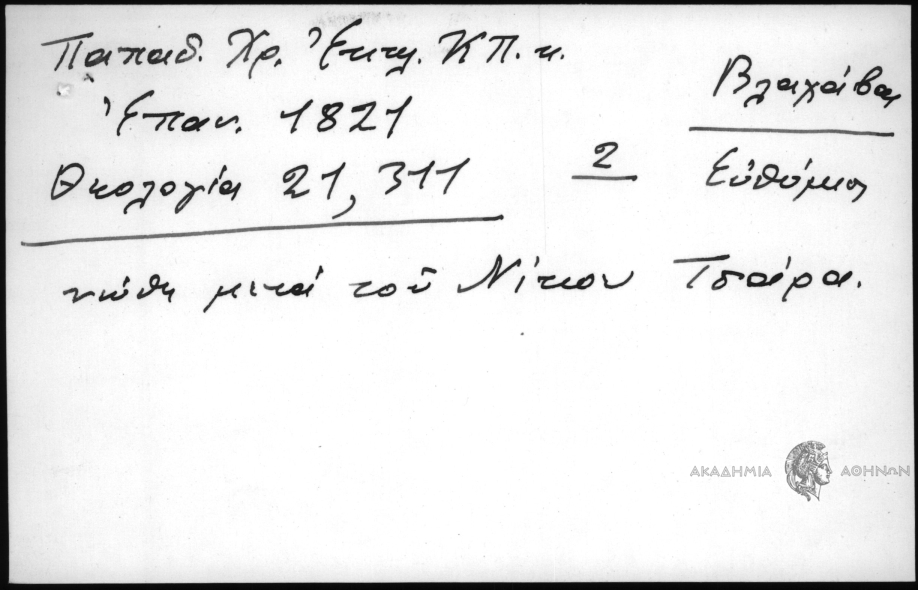 Παπαδ. Χρ. Ἐκκλ. ΚΠ. κ.
Ἐπαν. 1821
Θεολογία 21, 311
2
Βλαχάβας
Εὐθύμιος
μετά τοῦ Νίκου Τσάρα.
ΑΚΑΔΗΜΙΑ ΑΘΗΝΩΝ